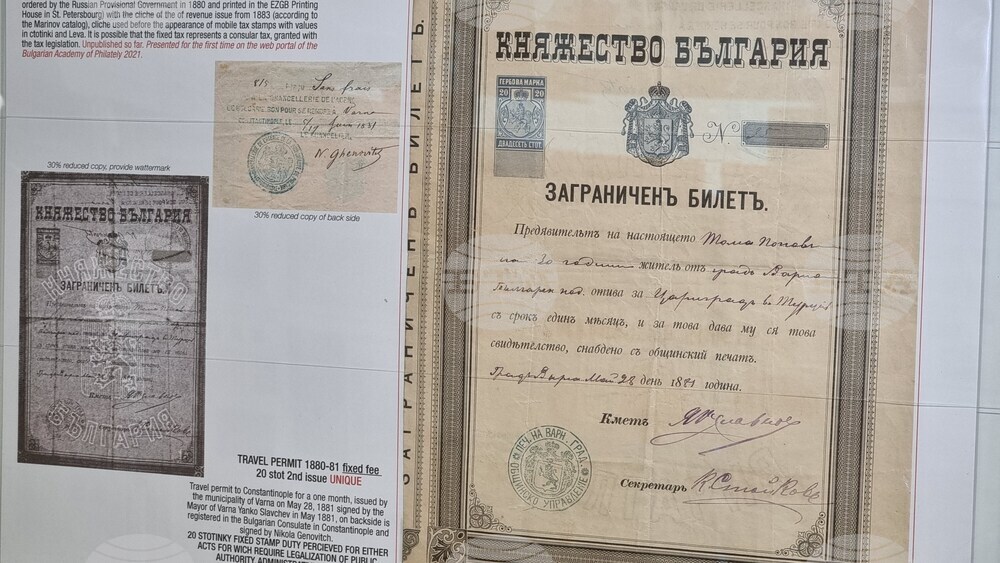 ordered by the Russian Provisional Government in 1880 and printed in the EZGB Printing
House in St. Petersburg) with the cliche of the of revenue issue from 1883 (according to
the Marinov catalog), cliche used before the appearance of mobile tax stamps with values
in ctotinki and Leva. It is possible that the fixed tax represents a consular tax, granted with
the tax legislation. Unpublished so far. Presented for the first time on the web portal of the
Bulgarian Academy of Philately 2021.
Sans frais
CHANCELLERIE DE L'AGENCE
BON POUR SE RENDRE A Varna
CONSTANTINOPLE, LE 1881
N. Ghenovitz
30% reduced copy of back side
30% reduced copy, provide wattermark
КНЯЖЕСТВО БЪЛГАРИЯ
ЗАГРАНИЧЕНЪ БИЛЕТЪ.
КНЯЖЕСТВО
БЪЛГАРИЯ
TRAVEL PERMIT 1880-81 fixed fee
20 stot 2nd issue UNIQUE
Travel permit to Constantinople for a one month, issued by
the municipality of Varna on May 28, 1881 signed by the
Mayor of Varna Yanko Slavchev in May 1881, on backside is
registered in the Bulgarian Consulate in Constantinople and
signed by Nikola Genovitch.
20 STOTINKY FIXED STAMP DUTY PERCIEVED FOR EITHER
ACTS FOR WICH REQUIRE LEGALIZATION OF PUBLIC
AUTHORITY
ЗАГРАНИЧЕНЪ БИЛЕТЪ.
КНЯЖЕСТВО БЪЛГАРИЯ
ГЕРБОВА МАРКА
20 20
ДВАДЕСЕТЬ СТОТ.
№
ЗАГРАНИЧЕНЪ БИЛЕТЪ.
Предявительтъ на настоящето Тома Поповъ
на 20 години житель отъ градъ Варна
Българск под. отива за Цариградъ в Турция
съ срокъ единъ мѣсяцъ, и за това дава му ся това
свидѣтелство, снабдено съ общинский печатъ.
Градъ Варна Май 28 день 1881 година.
Кметъ
ПЕЧ. НА ВАРН. ГРАД.
ОБЩИНСКО УПРАВЛЕНИЕ
Секретарь